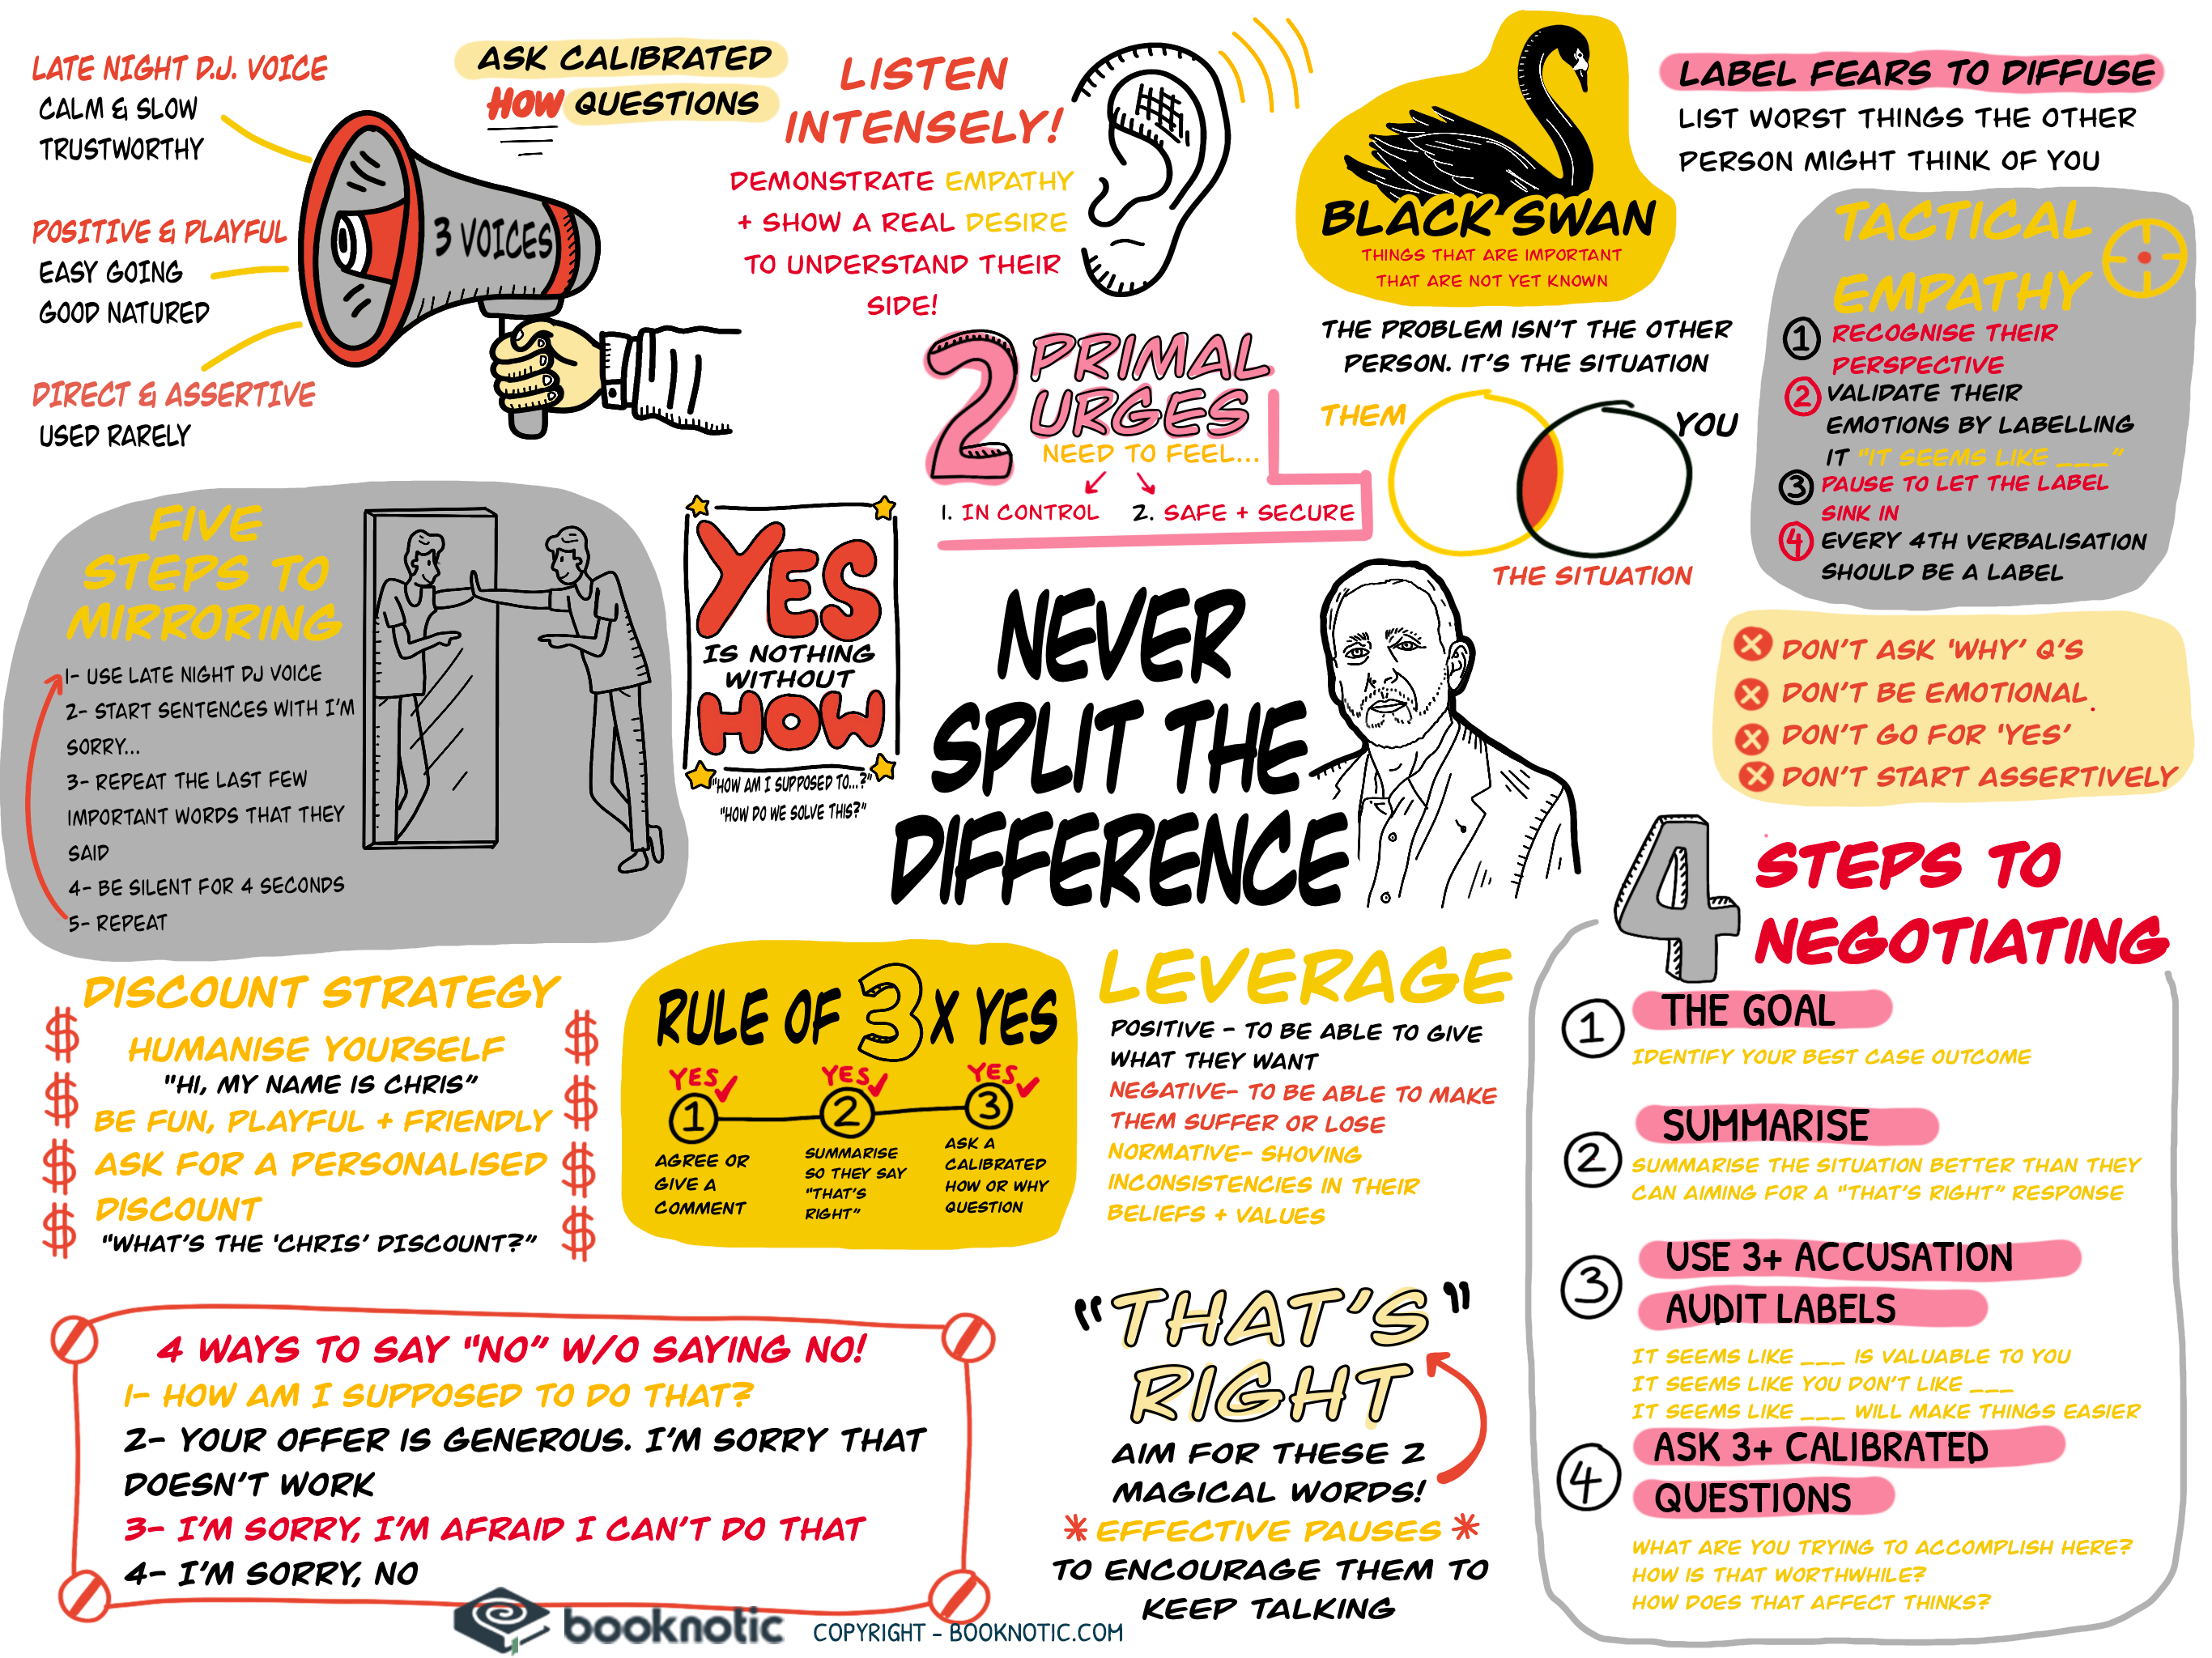 LATE NIGHT D.J. VOICE
CALM & SLOW
TRUSTWORTHY
POSITIVE & PLAYFUL
EASY GOING
GOOD NATURED
DIRECT & ASSERTIVE
USED RARELY
3 VOICES
ASK CALIBRATED
HOW QUESTIONS
LISTEN
INTENSELY!
DEMONSTRATE EMPATHY
+ SHOW A REAL DESIRE
TO UNDERSTAND THEIR
SIDE!
BLACK SWAN
THINGS THAT ARE IMPORTANT
THAT ARE NOT YET KNOWN
THE PROBLEM ISN'T THE OTHER
PERSON. IT'S THE SITUATION
THEM
YOU
THE SITUATION
LABEL FEARS TO DIFFUSE
LIST WORST THINGS THE OTHER
PERSON MIGHT THINK OF YOU
TACTICAL
EMPATHY
1 RECOGNISE THEIR
PERSPECTIVE
2 VALIDATE THEIR
EMOTIONS BY LABELLING
IT "IT SEEMS LIKE ___"
3 PAUSE TO LET THE LABEL
SINK IN
4 EVERY 4TH VERBALISATION
SHOULD BE A LABEL
2 PRIMAL
URGES
NEED TO FEEL...
1. IN CONTROL 2. SAFE + SECURE
FIVE
STEPS TO
MIRRORING
1- USE LATE NIGHT DJ VOICE
2- START SENTENCES WITH I'M
SORRY...
3- REPEAT THE LAST FEW
IMPORTANT WORDS THAT THEY
SAID
4- BE SILENT FOR 4 SECONDS
5- REPEAT
YES
IS NOTHING
WITHOUT
HOW
"HOW AM I SUPPOSED TO...?"
"HOW DO WE SOLVE THIS?"
NEVER
SPLIT THE
DIFFERENCE
DON'T ASK 'WHY' Q'S
DON'T BE EMOTIONAL.
DON'T GO FOR 'YES'
DON'T START ASSERTIVELY
DISCOUNT STRATEGY
HUMANISE YOURSELF
"HI, MY NAME IS CHRIS"
BE FUN, PLAYFUL + FRIENDLY
ASK FOR A PERSONALISED
DISCOUNT
"WHAT'S THE 'CHRIS' DISCOUNT?"
$ $ $ $
$ $ $ $
RULE OF 3 X YES
YES YES YES
1 2 3
AGREE OR
GIVE A
COMMENT
SUMMARISE
SO THEY SAY
"THAT'S
RIGHT"
ASK A
CALIBRATED
HOW OR WHY
QUESTION
LEVERAGE
POSITIVE - TO BE ABLE TO GIVE
WHAT THEY WANT
NEGATIVE- TO BE ABLE TO MAKE
THEM SUFFER OR LOSE
NORMATIVE- SHOVING
INCONSISTENCIES IN THEIR
BELIEFS + VALUES
4 STEPS TO
NEGOTIATING
1 THE GOAL
IDENTIFY YOUR BEST CASE OUTCOME
2 SUMMARISE
SUMMARISE THE SITUATION BETTER THAN THEY
CAN AIMING FOR A "THAT'S RIGHT" RESPONSE
3 USE 3+ ACCUSATION
AUDIT LABELS
IT SEEMS LIKE ___ IS VALUABLE TO YOU
IT SEEMS LIKE YOU DON'T LIKE ___
IT SEEMS LIKE ___ WILL MAKE THINGS EASIER
4 ASK 3+ CALIBRATED
QUESTIONS
WHAT ARE YOU TRYING TO ACCOMPLISH HERE?
HOW IS THAT WORTHWHILE?
HOW DOES THAT AFFECT THINKS?
4 WAYS TO SAY "NO" W/O SAYING NO!
1- HOW AM I SUPPOSED TO DO THAT?
2- YOUR OFFER IS GENEROUS. I'M SORRY THAT
DOESN'T WORK
3- I'M SORRY, I'M AFRAID I CAN'T DO THAT
4- I'M SORRY, NO
"THAT'S
RIGHT"
AIM FOR THESE 2
MAGICAL WORDS!
* EFFECTIVE PAUSES *
TO ENCOURAGE THEM TO
KEEP TALKING
booknotic
COPYRIGHT - BOOKNOTIC.COM